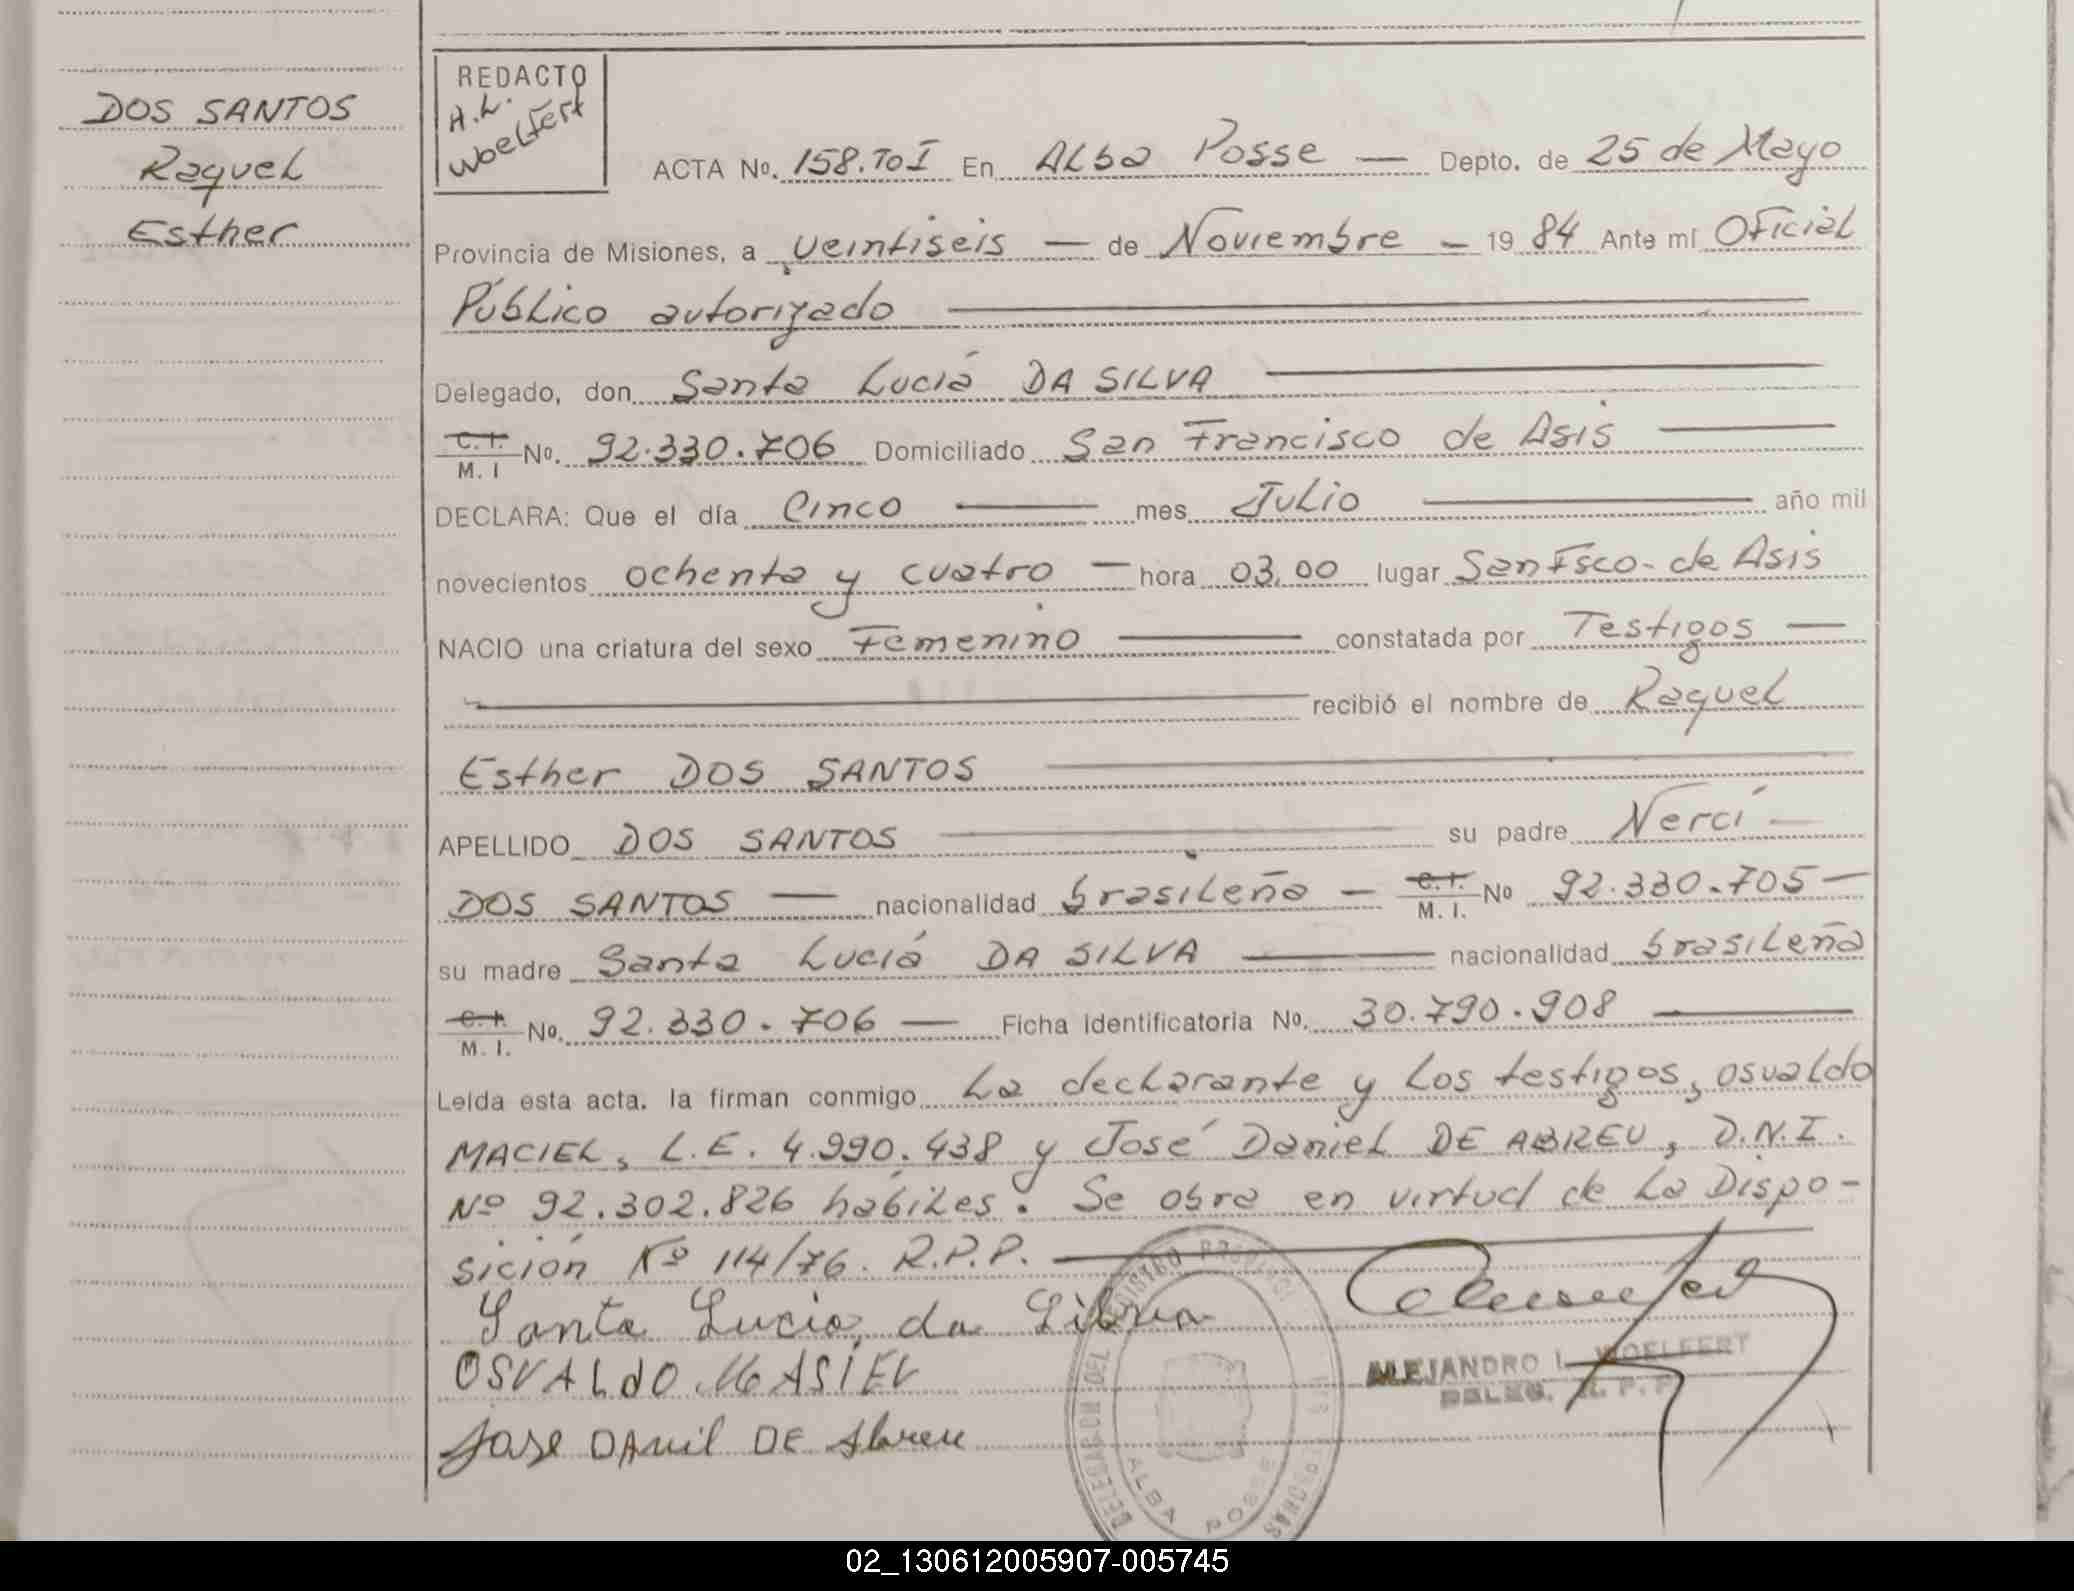 DOS SANTOS
Raquel
Esther
REDACTO
A.L.
Woelfert
ACTA No. 158.ToI En ALba Posse — Depto. de 25 de Mayo
Provincia de Misiones, a veintiseis — de Noviembre — 19 84 Ante mí Oficial
Público autorizado
Delegado, don Santa Lucía DA SILVA
C.I. M. I No. 92.330.706 Domiciliado San Francisco de Asis
DECLARA: Que el día Cinco — mes Julio — año mil
novecientos ochenta y cuatro — hora 03.00 lugar San Fsco. de Asis
NACIO una criatura del sexo Femenino — constatada por Testigos —
recibió el nombre de Raquel
Esther DOS SANTOS
APELLIDO DOS SANTOS — su padre Nercí —
DOS SANTOS — nacionalidad brasileña — C.I. M. I. No 92.330.705 —
su madre Santa Lucía DA SILVA — nacionalidad brasileña
C.I. M. I. No. 92.330.706 — Ficha identificatoria No. 30.790.908 —
Leída esta acta. la firman conmigo La declarante y Los testigos, osvaldo
MACIEL, L.E. 4.990.438 y José Daniel DE ABREU, D.N.I.
Nº 92.302.826 hábiles. Se obra en virtud de La Dispo-
sición Nº 114/76. R.P.P. —
Santa Lucia da Silva
OSVALdO MASIEL
Jose DAnil DE Abreu
ALEJANDRO I. WOELFERT
DELEG. R. P. P.
DELEGACION DEL REGISTRO PROVINCIAL DE LAS PERSONAS
ALBA POSSE
02_130612005907-005745